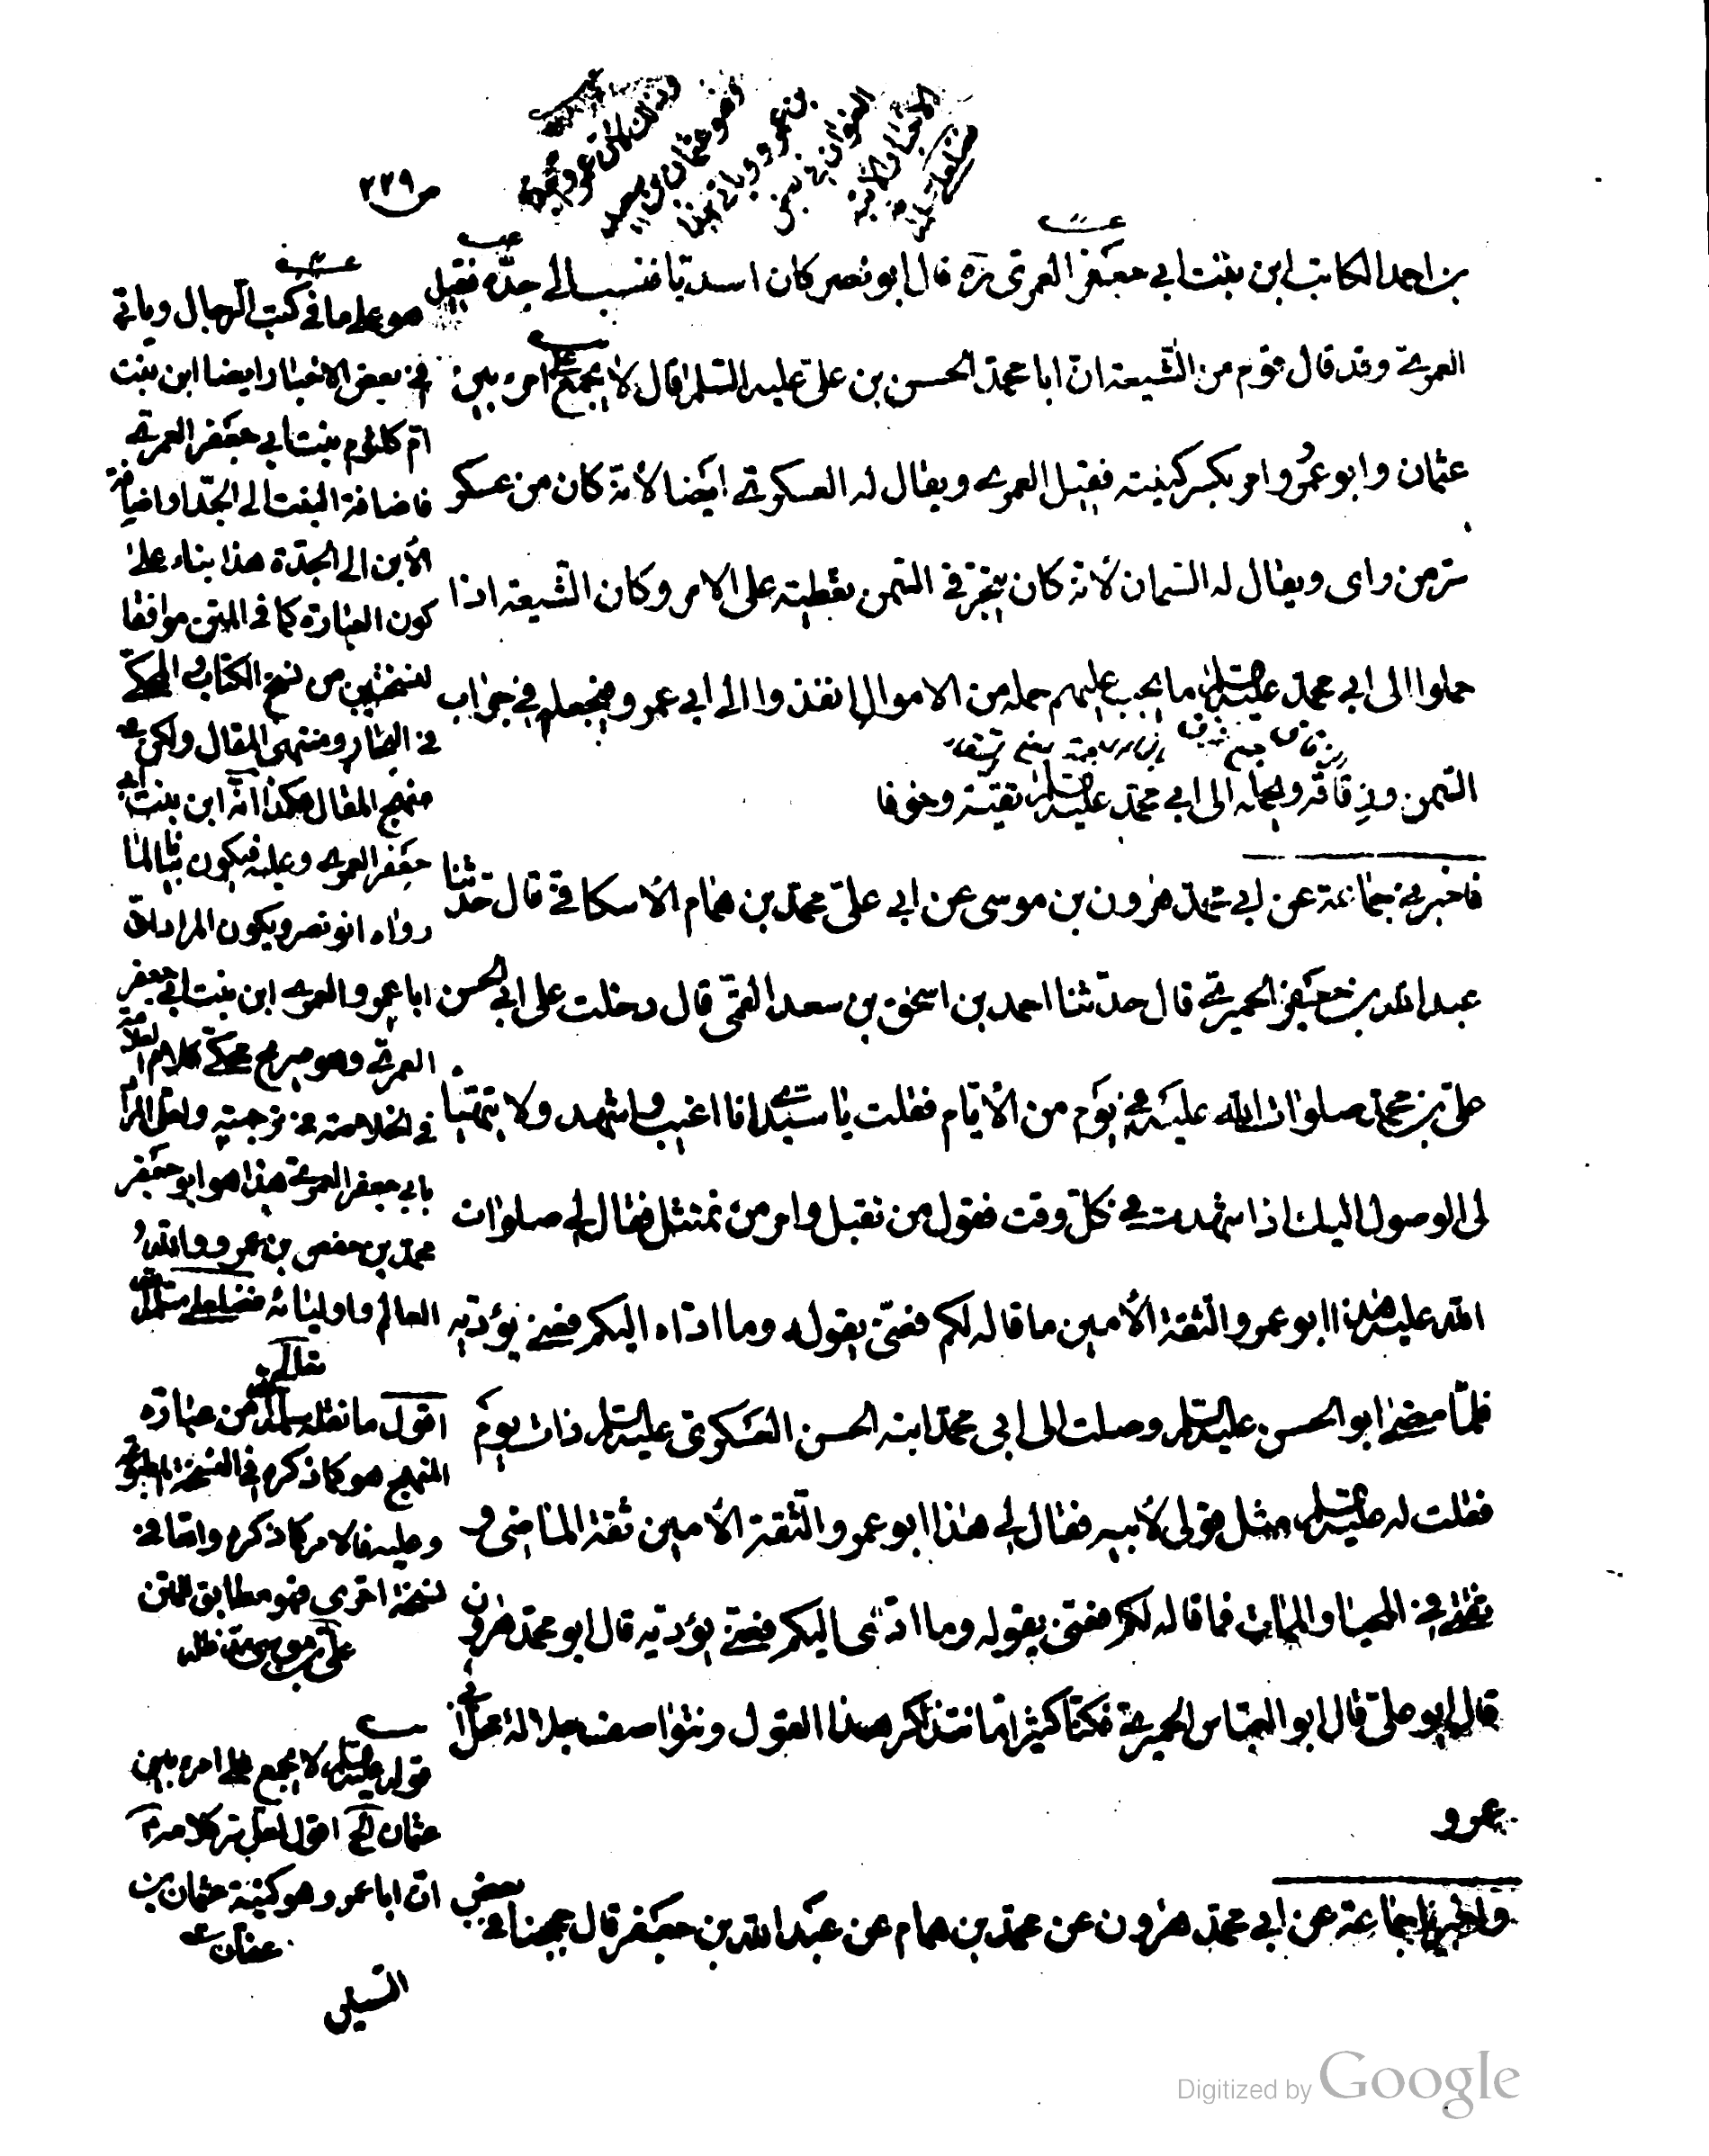 ص ٢٢٩
بن احمد الكاتب ابن بنت ابي جعفر العمري ره قال ابو نصر كان اسديا فنسب الى جده فقيل
العمري وقد قال قوم من الشيعة ان ابا محمد الحسن بن علي عليه السلام قال لا يجمع على امرء بين
عثمان وابو عمرو وامر بكسر كنيته فقيل العمري ويقال له العسكري ايضا لانه كان من عسكر
سر من راى ويقال له السمان لانه كان يتجر في السمن تغطية على الامر وكان الشيعة اذا
حملوا الى ابي محمد عليه السلام ما يجب عليهم حمله من الاموال انفذوا الى ابي عمرو فيجعله في جراب
السمن وزقاقه ويحمله الى ابي محمد عليه السلام تقية وخوفا
فاخبرني جماعة عن ابي محمد هرون بن موسى عن ابي علي محمد بن همام الاسكافي قال حدثنا
عبد الله بن جعفر الحميري قال حدثنا احمد بن اسحق بن سعد القمي قال دخلت على ابي الحسن
علي بن محمد صلوات الله عليه في يوم من الايام فقلت يا سيدي انا اغيب واشهد ولا يتهيأ
لي الوصول اليك اذا شهدت في كل وقت فقول من نقبل وامر من نمتثل فقال لي صلوات
الله عليه هذا ابو عمرو الثقة الامين ما قاله لكم فعني يقوله وما اداه اليكم فعني يؤديه
فلما مضى ابو الحسن عليه السلام وصلت الى ابي محمد ابنه الحسن العسكري عليه السلام ذات يوم
فقلت له عليه السلام مثل قولي لابيه فقال لي هذا ابو عمرو الثقة الامين ثقة الماضي و
ثقتي في المحيا والممات فما قاله لكم فعني يقوله وما ادى اليكم فعني يؤديه قال ابو محمد هرون
قال ابو علي قال ابو العباس الحميري فكنا كثيرا ما نتذاكر هذا القول ونتواصف جلالة محل ابي
عمرو
واخبرنا جماعة عن ابي محمد هرون عن محمد بن همام عن عبد الله بن جعفر قال حججنا في بعض
السنين
هو على ما في كتب الرجال وياتي
في بعض الاخبار ايضا ابن بنت
ام كلثوم بنت ابي جعفر العمري
فاضافة البنت الى الجد او اضافة
الابن الى الجدة هذا بناء على
كون العبارة كما في المتن موافقا
لنسختين من نسخ الكتاب والمحكي
في البحار ومنتهى المقال ولكن في
منهج المقال هكذا انه ابن بنت ابي
جعفر العمري وعليه فيكون
رواه ابو نصر ويكون المراد ان
ابا عمرو العمري ابن بنت ابي جعفر
العمري وهو صريح محكي كلام العلامة
في الخلاصة في ترجمته ولعل المراد
بابي جعفر العمري هذا هو ابو جعفر
محمد بن حفص بن عمرو والله
العالم واوليائه
اقول ما نقله من عبارة
المنهج هو كما ذكره في النسخة المطبوعة
وعليه فالامر كما ذكره واما في
نسخة اخرى فهو مطابق للمتن
قوله عليه السلام لا يجمع على امرء بين
عثمان الخ اقول لعل سر كلامه
ان ابا عمرو هو كنية عثمان بن
عفان
Digitized by Google